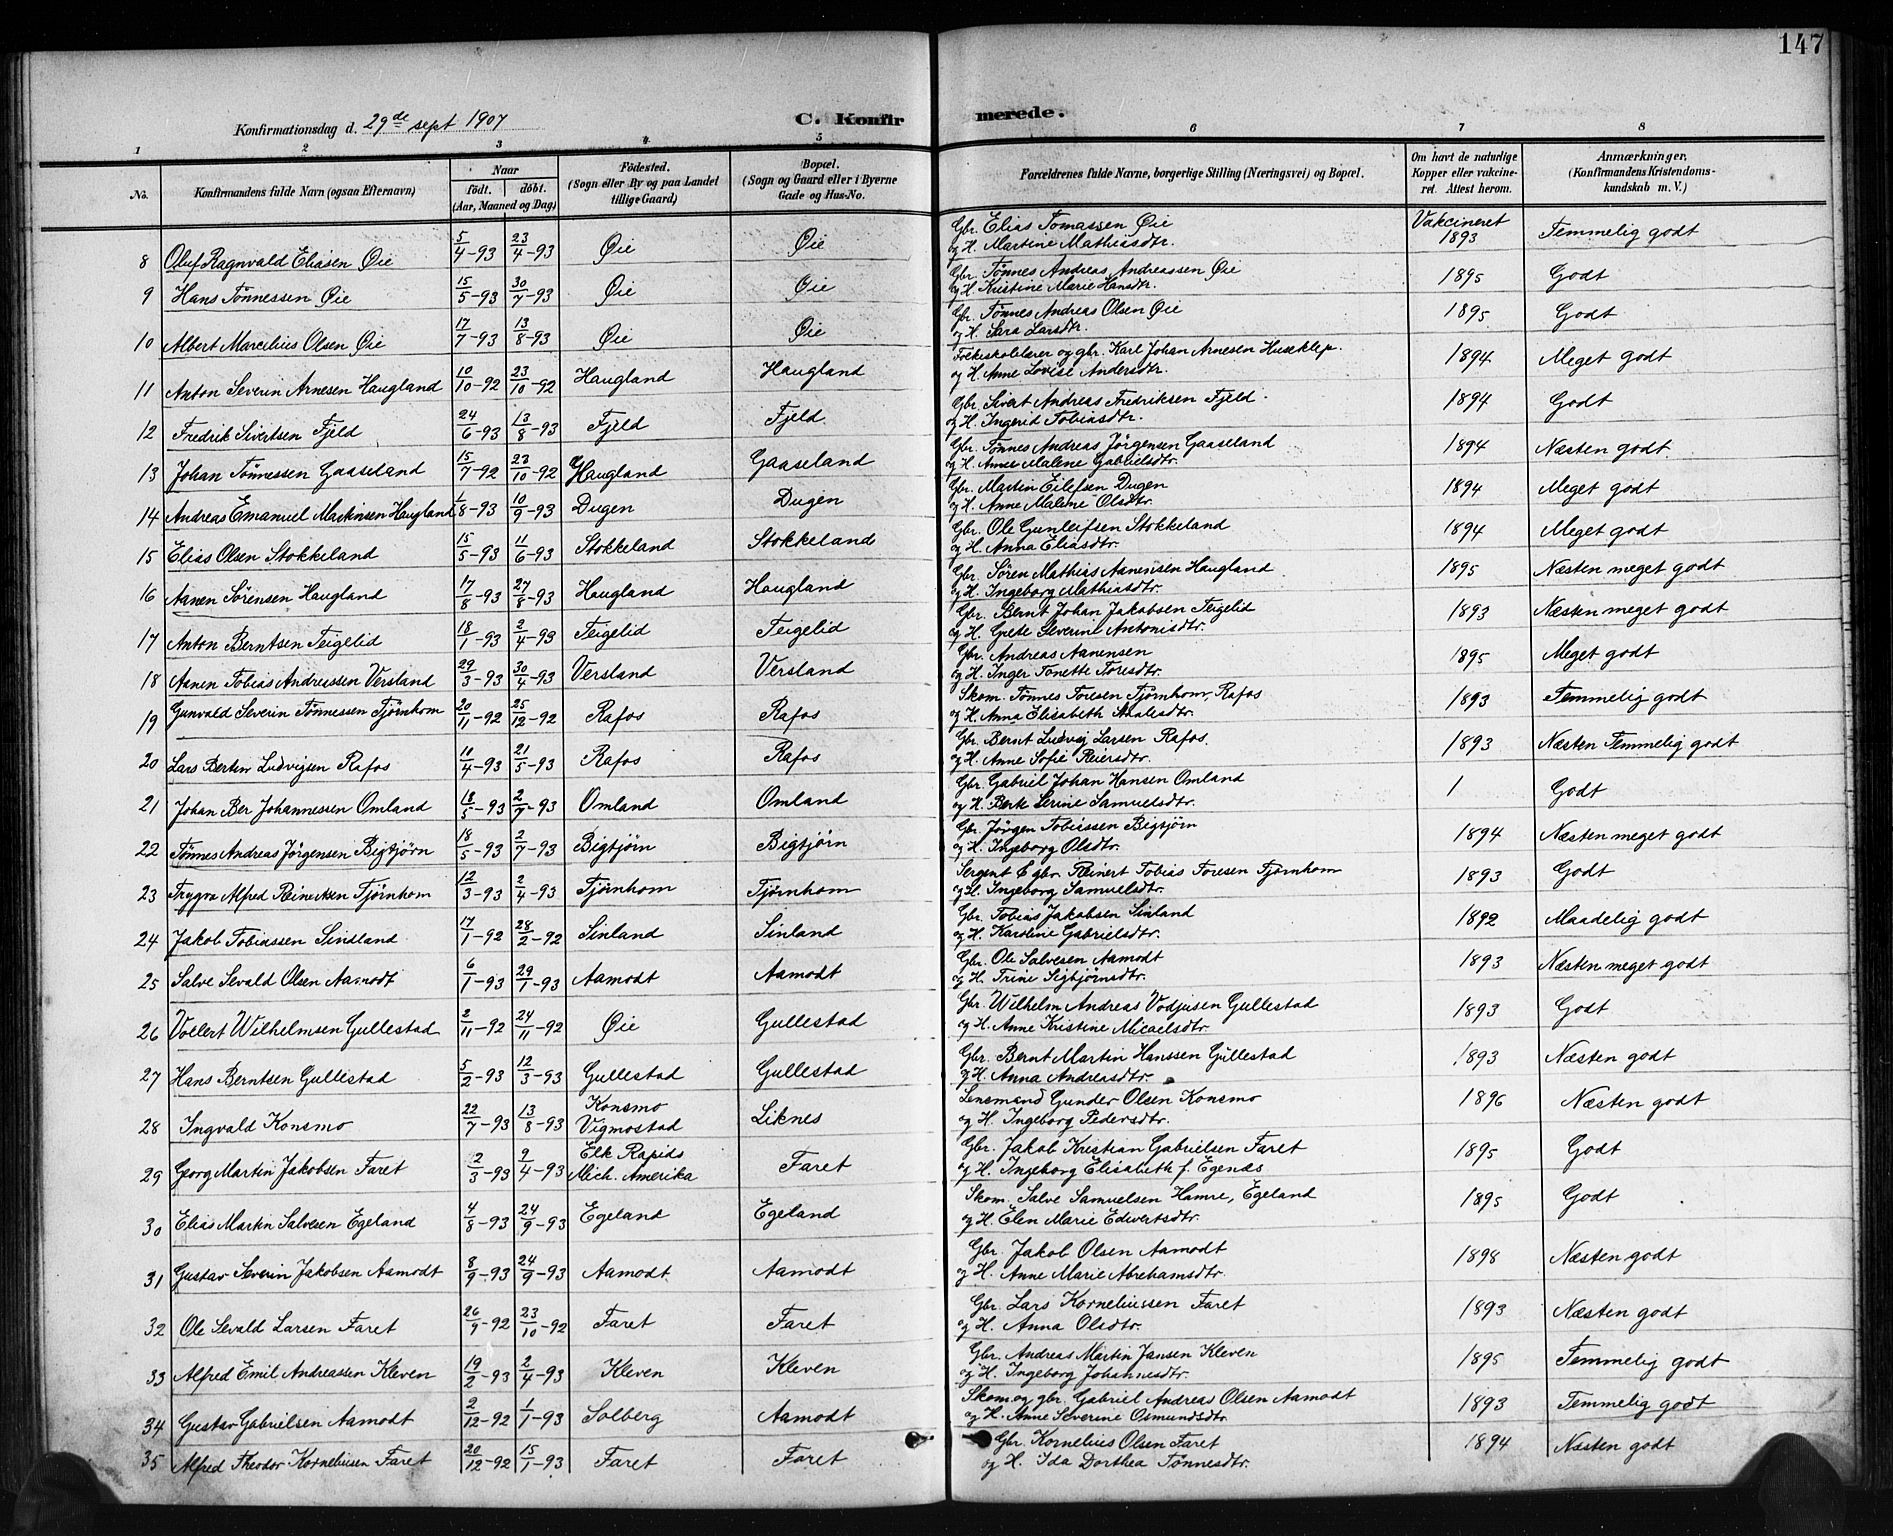 147
Konfirmationsdag d. 29de sept 1907
C. Konfirmerede.
1 2 3 4 5 6 7 8
No. | Konfirmandens fulde Navn (ogsaa Efternavn) | Naar født. døbt. (Aar, Maaned og Dag) | Fødested. (Sogn eller By og paa Landet tillige Gaard) | Bopæl. (Sogn og Gaard eller i Byerne Gade og Hus-No. | Forældrenes fulde Navne, borgerlige Stilling (Næringsvei) og Bopæl. | Om havt de naturlige Kopper eller vakcineret. Attest herom. | Anmærkninger. (Konfirmandens Kristendomskundskab m. V.)
8 Oluf Ragnvald Eliasen Øie 5/4-93 23/4-93 Øie Øie Gbr. Elias Tomassen Øie Vakcineret 1893 Temmelig godt
og H. Martine Mathiasdtr.
9 Hans Tønnessen Øie 15/5-93 30/7-93 Øie Øie Gbr. Tønnes Andreas Andreassen Øie 1895 Godt
og H. Kristine Marie Hansdtr.
10 Albert Marcelius Olsen Øie 17/7-93 13/8-93 Øie Øie Gbr. Tønnes Andreas Olsen Øie 1895 Godt
og H. Sara Larsdtr.
11 Anton Severin Arnesen Haugland 10/10-92 23/10-92 Haugland Haugland Folkeskolelærer og gbr. Karl Johan Arnesen Huseklep. 1894 Meget godt
og H. Anne Lovise Andersdtr.
12 Fredrik Sivertsen Fjeld 24/6-93 13/8-93 Fjeld Fjeld Gbr. Sivert Andreas Fredriksen Fjeld. 1894 Godt
og H. Ingerid Tobiasdtr.
13 Johan Tønnessen Gaaseland 15/7-92 23/10-92 Haugland Gaaseland Gbr. Tønnes Andreas Jørgensen Gaaseland 1894 Næsten godt.
og H. Anne Malene Gabrielsdtr.
14 Andreas Emanuel Martinsen Haugland 1/8-93 10/9-93 Dugen Dugen Gbr. Martin Eilefsen Dugen 1894 Meget godt
og H. Anne Malene Olsdtr.
15 Elias Olsen Stokkeland 15/5-93 11/6-93 Stokkeland Stokkeland Gbr. Ole Gunleifsen Stokkeland 1894 Meget godt
og H. Anna Eliasdtr.
16 Aanen Sørensen Haugland 17/8-93 27/8-93 Haugland Haugland Gbr. Søren Mathias Aanensen Haugland 1895 Næsten meget godt
og H. Ingeborg Mathiasdtr.
17 Anton Berntsen Teigelid 18/1-93 2/4-93 Teigelid Teigelid Gbr. Bernt Johan Jakobsen Teigelid 1893 Næsten meget godt
og H. Grete Severine Antonisdtr.
18 Aanen Tobias Andreassen Versland 29/3-93 30/4-93 Versland Versland Gbr. Andreas Aanensen 1895 Meget godt
og H. Inger Tonette Toresdtr.
19 Gunvald Severin Tønnessen Tjørnhom 20/11-92 25/12-92 Rafos Rafos Skom. Tønnes Toresen Tjørnhom, Rafos 1893 Temmelig godt
og H. Anna Elisabeth Aalesdtr.
20 Lars Bertin Ludvigsen Rafos 10/4-93 21/5-93 Rafos Rafos Gbr. Bernt Ludvig Larsen Rafos. 1893 Næsten Temmelig godt
og H. Anne Sofie Reiersdtr.
21 Johan Ber Johannessen Omland 18/5-93 2/7-93 Omland Omland Gbr. Gabriel Johan Hansen Omland 1 Godt
og H. Berte Serine Samuelsdtr.
22 Tønnes Andreas Jørgensen Bigtjørn 18/5-93 2/7-93 Bigtjørn Bigtjørn Gbr. Jørgen Tobiassen Bigtjørn 1894 Næsten meget godt
og H. Ingeborg Olsdtr.
23 Trygve Alfred Reinertsen Tjørnhom 12/3-93 2/4-93 Tjørnhom Tjørnhom Sergent & gbr. Reinert Tobias Toresen Tjørnhom 1893 Godt
og H. Ingeborg Samuelsdtr.
24 Jakob Tobiassen Sindland 17/1-92 28/2-92 Sinland Sinland Gbr. Tobias Jakobsen Sinland 1892 Maadelig godt
og H. Karoline Gabrielsdtr.
25 Salve Sevald Olsen Aamodt 6/1-93 29/1-93 Aamodt Aamodt Gbr. Ole Salvesen Aamodt 1893 Næsten meget godt
og H. Trine Sigbjørnsdtr.
26 Vollert Wilhelmsen Gullestad 2/11-92 24/11-92 Øie Gullestad Gbr. Wilhelm Andreas Gullestad 1893 Godt
og H. Anne Kristine Micaelsdtr.
27 Hans Berntsen Gullestad 5/2-93 12/3-93 Gullestad Gullestad Gbr. Bernt Martin Hanssen Gullestad 1893 Næsten godt
og H. Anna Andreasdtr.
28 Ingvald Konsmo 22/7-93 13/8-93 Konsmo Vigmostad Liknes Lensmand Gunder Olsen Konsmo 1896 Næsten godt
og H. Ingeborg Pedersdtr.
29 Georg Martin Jakobsen Faret 2/3-93 9/4-93 Elk Rapids Mich. Amerika Faret Gbr. Jakob Kristian Gabrielsen Faret 1895 Godt
og H. Ingeborg Elisabeth f. Egenæs
30 Elias Martin Salvesen Egeland 4/8-93 24/9-93 Egeland Egeland Skom. Salve Samuelsen Hamre, Egeland 1895 Godt
og H. Elen Marie Edvertsdtr.
31 Gustav Severin Jakobsen Aamodt 8/9-93 24/9-93 Aamodt Aamodt Gbr. Jakob Olsen Aamodt 1898 Næsten godt
og H. Anne Marie Abrehamsdtr.
32 Ole Sevald Larsen Faret 26/9-92 23/10-92 Faret Faret Gbr. Lars Korneliussen Faret 1893 Næsten godt
og H. Anna Olsdtr.
33 Alfred Emil Andreassen Kleven 19/2-93 2/4-93 Kleven Kleven Gbr. Andreas Martin Jansen Kleven 1895 Temmelig godt
og H. Ingeborg Johannesdtr.
34 Gustav Gabrielsen Aamodt 2/12-92 1/1-93 Solberg Aamodt Skom. og gbr. Gabriel Andreas Olsen Aamodt 1893 Temmelig godt
og H. Anne Severine Osmundsdtr.
35 Alfred Theodor Korneliusen Faret 20/12-92 15/1-93 Faret Faret Gbr. Kornelius Olsen Faret 1894 Næsten godt
og H. Ida Dorthea Tønnesdtr.